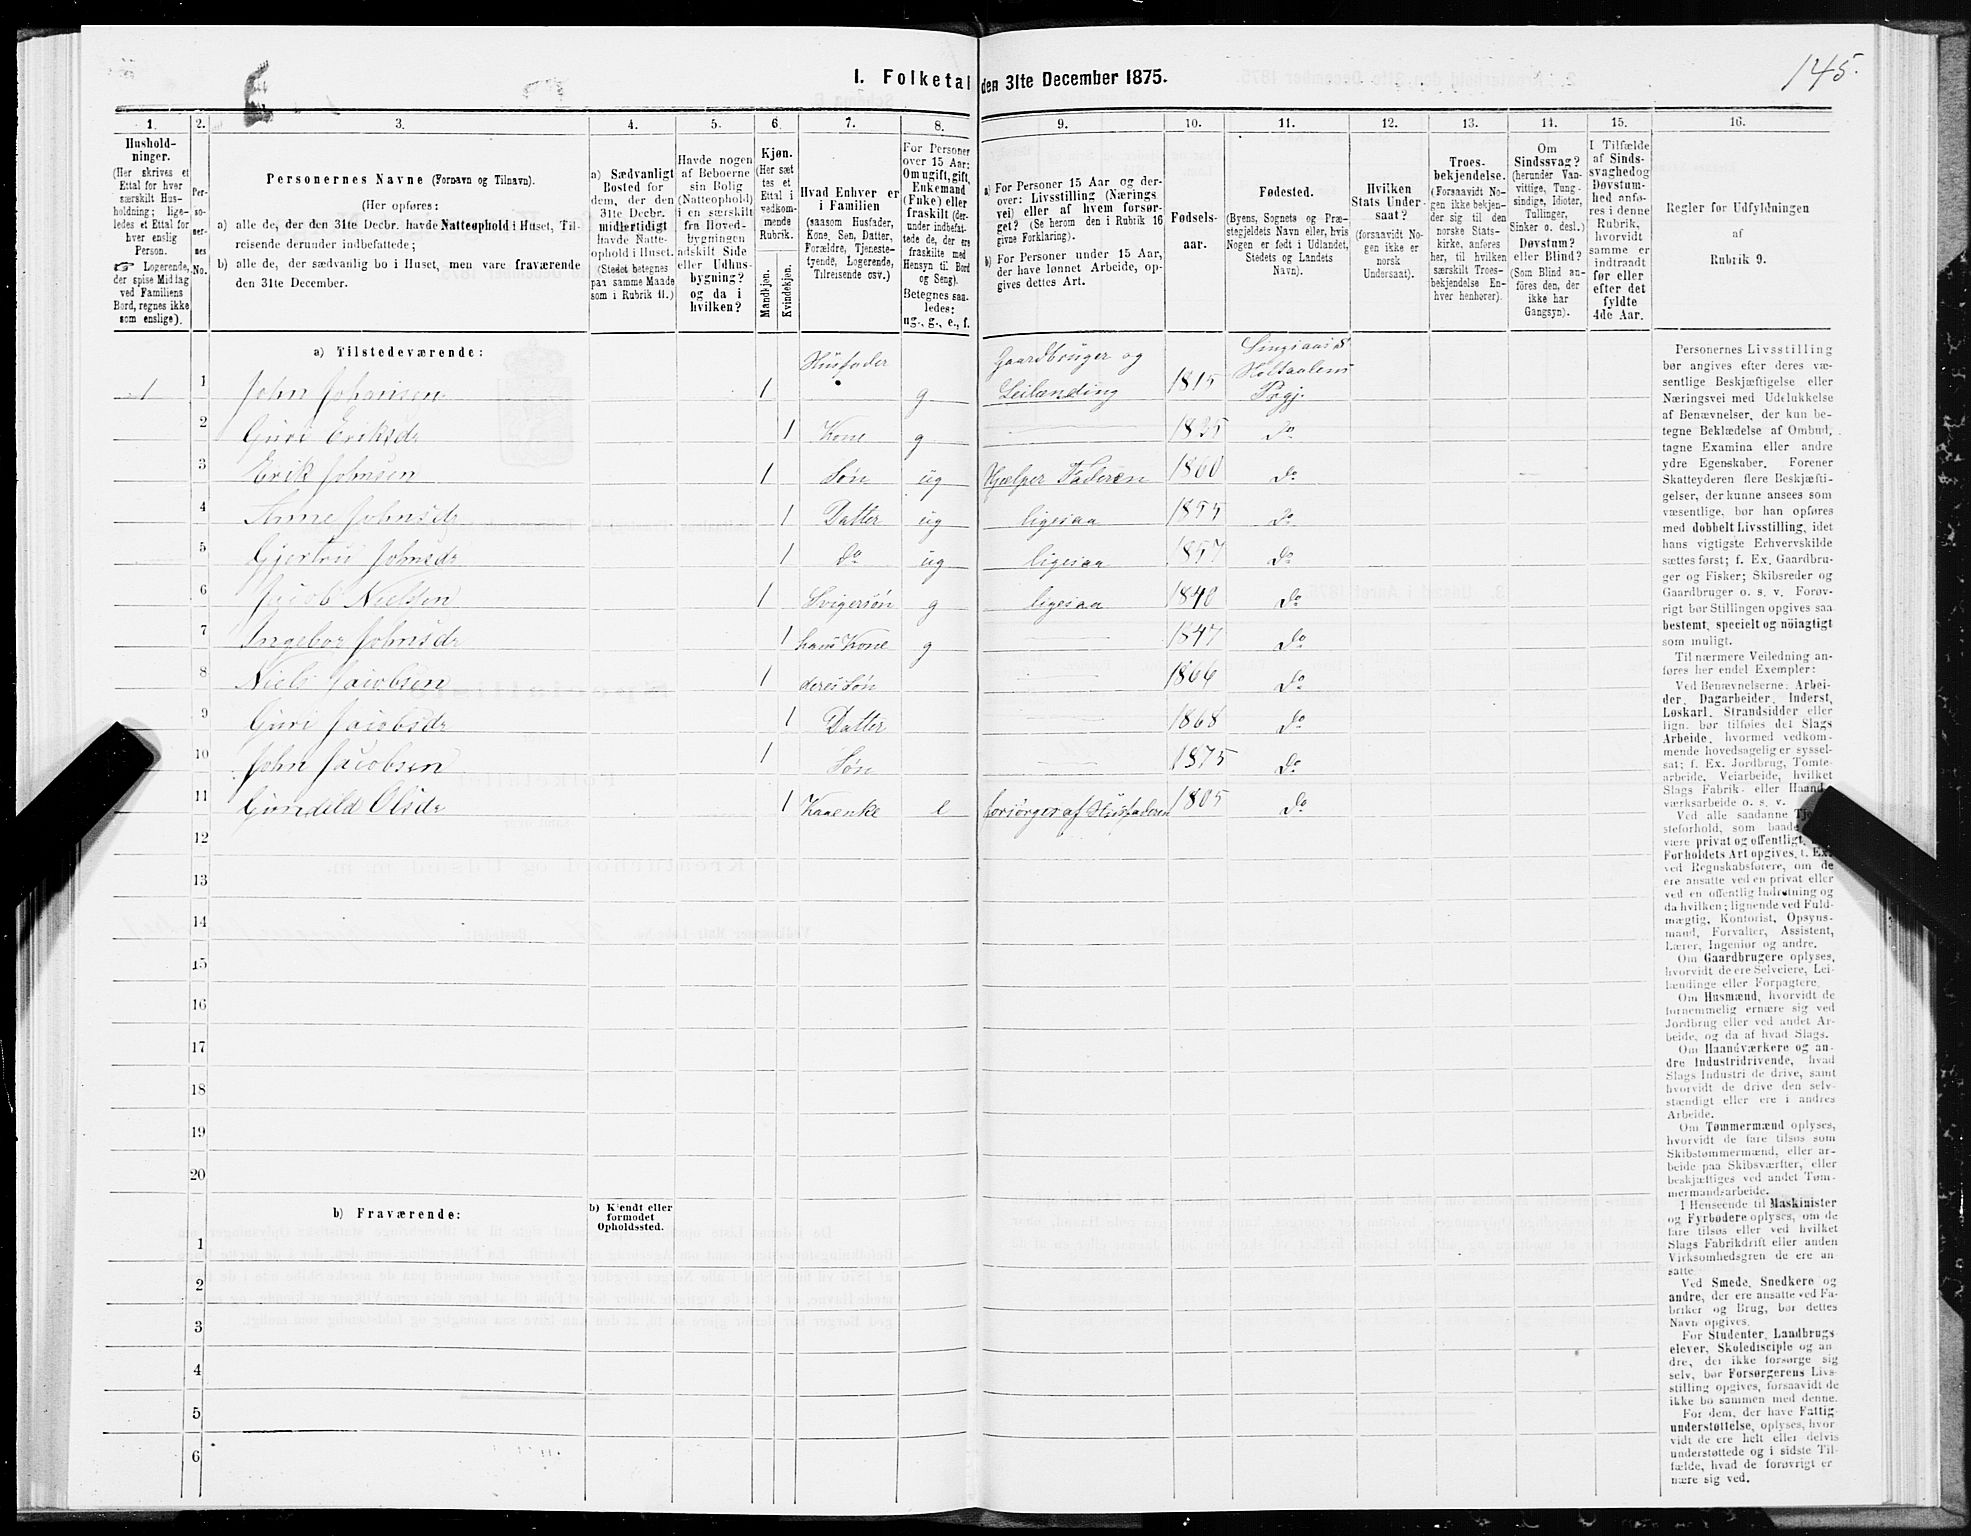 1. Folketal den 31te December 1875.
145.
1. 2. 3. 4. 5. 6. 7. 8. 9. 10. 11. 12. 13. 14. 15. 16.
Hushold-
ninger.
(Her skrives et
Ettal for hver
særskilt Hus-
holdning; lige-
ledes et Ettal for
hver enslig
Person.
☞ Logerende,
der spise Middag
ved Familiens
Bord, regnes ikke
som enslige).
Per-
so-
ner-
nes
No.
Personernes Navne (Fornavn og Tilnavn).
(Her opføres:
a) alle de, der den 31te Decbr. havde Natteophold i Huset, Til-
reisende derunder indbefattede;
b) alle de, der sædvanlig bo i Huset, men vare fraværende
den 31te December.
a) Sædvanligt
Bosted for
dem, der den
31te Decbr.
midlertidigt
havde Natte-
ophold i Huset.
(Stedet betegnes
paa samme Maade
som i Rubrik 11.)
Havde nogen
af Beboerne
sin Bolig
(Natteophold)
i en særskilt
fra Hoved-
bygningen
adskilt Side
eller Udhus-
bygning?
og da i
hvilken?
Kjøn.
(Her sæt
tes et
Ettal i
vedkom-
mende
Rubrik.
Mandkjøn.
Kvindekjøn.
Hvad Enhver er
i Familien
(saasom Husfader,
Kone, Søn, Datter,
Forældre, Tjeneste-
tyende, Logerende,
Tilreisende osv.)
For Personer
over 15 Aar:
Om ugift, gift,
Enkemand
(Enke) eller
fraskilt (der-
under indbefat-
tede de, der ere
fraskilte med
Hensyn til Bord
og Seng).
Betegnes saa-
ledes:
ug., g., e., f.
a) For Personer 15 Aar og der-
over: Livsstilling (Nærings
vei) eller af hvem forsør-
get? (Se herom den i Rubrik 16
givne Forklaring).
b) For Personer under 15 Aar,
der have lønnet Arbeide, op-
gives dettes Art.
Fødsels-
aar.
Fødested.
(Byens, Sognets og Præ-
stegjeldets Navn eller, hvis
Nogen er født i Udlandet,
Stedets og Landets
Navn).
Hvilken
Stats Under-
saat?
(forsaavidt No-
gen ikke er
norsk
Undersaat).
Troes-
bekjendelse.
(Forsaavidt No-
gen ikke bekjen-
der sig til den
norske Stats-
kirke, anføres
her, til hvilken
særskilt Troes-
bekjendelse En-
hver henhører).
Om
Sindssvag?
(herunder Van-
vittige, Tung-
sindige, Idioter,
Tullinger,
Sinker o. desl.)
Døvstum?
eller Blind?
(Som Blind an-
føres den, der
ikke har
Gangsyn).
I Tilfælde
af Sinds-
svaghed og
Døvstum-
hed anfø-
res i denne
Rubrik,
hvorvidt
samme er
indtraadt
før eller
efter det
fyldte
4de Aar.
Regler for Udfyldningen
af
Rubrik 9.
a) Tilstedeværende:
1 1 John Johansen 1 Husfader g Gaardbruger og Leilænding 1815 Singsaas Holtaalens Prgj.
2 Guri Eriksdr 1 Kone g 1825 Do
3 Erik Johnsen 1 Søn ug Hjælper Faderen 1860 Do
4 Anne Johnsdr 1 Datter ug ligesaa 1855 Do
5 Gjertru Johnsdr 1 Do ug ligesaa 1857 Do
6 Jacob Nielsen 1 Svigersøn g ligesaa 1840 Do
7 Ingebor Johnsdr 1 hans Kone g 1847 Do
8 Niels Jacobsen 1 deres Søn 1866 Do
9 Guri Jacobsdr 1 Datter 1868 Do
10 John Jacobsen 1 Søn 1875 Do
11 Gunhild Olsdr 1 Kaaenke e forsørges af Husfaderen 1805 Do
12
13
14
15
16
17
18
19
20
b) Fraværende:
b) Kjendt eller
formodet
Opholdssted.
1
2
3
4
5
6
Personernes Livsstilling
bør angives efter deres væ-
sentlige Beskjæftigelse eller
Næringsvei med Udelukkelse
af Benævnelser, der kun be-
tegne Beklædelse af Ombud,
tagne Examina eller andre
ydre Egenskaber. Forener
Skatteyderen flere Beskjæfti-
gelser, der kunne ansees som
væsentlige, bør han opføres
med dobbelt Livsstilling, idet
hans vigtigste Erhvervskilde
sættes først; f. Ex. Gaardbru-
ger og Fisker; Skibsreder og
Gaardbruger o. s. v. Forøv-
rigt bør Stillingen opgives saa
bestemt, specielt og nöiagtigt
som muligt.
Til nærmere Veiledning an-
føres her endel Exempler:
Ved Benævnelserne: Arbei-
der, Dagarbeider, Inderst,
Løskarl, Strandsidder eller
lign. bør tilføies det Slags
Arbeide, hvormed vedkom-
mende hovedsagelig er syssel-
sat; f. Ex. Jordbrug, Tomte-
arbeide, Veiarbeide, hvilket
Slags Fabrik- eller Haand-
værksarbeide o. s. v.
Ved alle saadanne
steforhold, som baade
være privat og offentligt,
Forholdets Art opgives, f. Ex.
ved Regnskabsførere, om de
ere ansatte ved en privat eller
ved en offentlig Indretning og
da hvilken; lignende ved Fuld-
mægtig, Kontorist, Opsyns-
mand, Forvalter, Assistent,
Lærer, Ingeniør og andre.
Om Gaardbrugere oplyses,
hvorvidt de ere Selveiere, Lei-
lændinge eller Forpagtere.
Om Husmænd, hvorvidt de
fornemmelig ernære sig ved
Jordbrug eller ved andet Ar-
beide, og da af hvad Slags.
Om Haandværkere og an-
dre Industridrivende, hvad
Slags Industri de drive, samt
hvorvidt de drive den selv-
stændigt eller ere i andres
Arbeide.
Om Tømmermænd oplyses,
hvorvidt de fare tilsøs som
Skibstømmermænd, eller ar-
beide paa Skibsværfter, eller
beskjæftiges ved andet Tøm-
mermandsarbeide.
I Henseende til Maskinister
og Fyrbødere oplyses, om de
fare tilsøs eller ved hvilket
Slags Fabrikdrift eller anden
Virksomhedsgren de ere an-
satte
Ved Smede, Snedkere og
andre, der ere ansatte ved Fa-
briker og Brug, bør dettes
Navn opgives.
For Studenter, Landbrugs
elever, Skoledisciple og an
dre, der ikke forsørge sig
selv, bør Forsørgerens Livs-
stilling opgives, forsaavidt de
ikke bo sammen med denne.
For dem, der have Fattig-
understøttelse, oplyses, hvor
vidt de ere helt eller delvis
understøttede og i sidste Til-
fælde, hvad de forøvrigt er
nære sig ved.